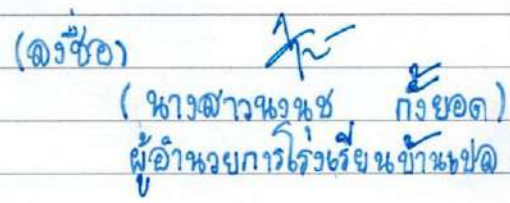 (ลงชื่อ)
(นางสาวนงนุช กิ่งยอด)
ผู้อำนวยการโรงเรียนบ้านแปล